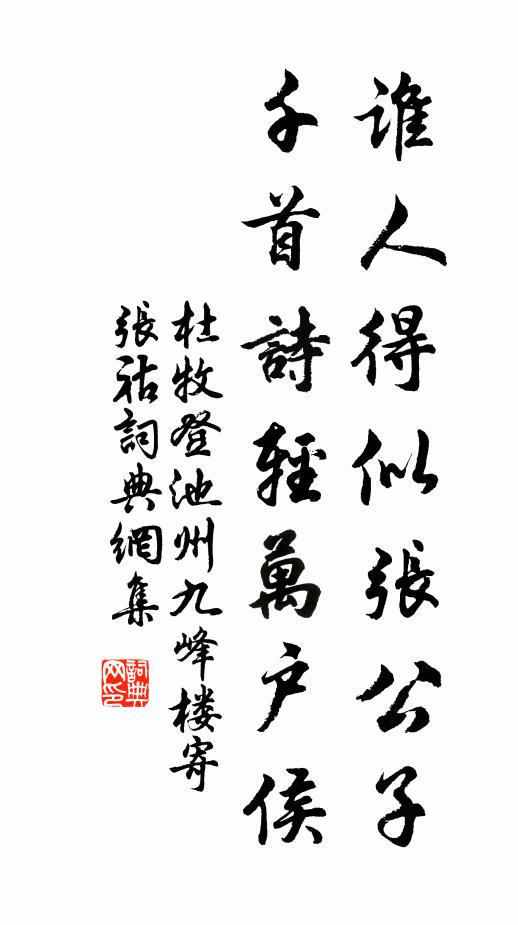 誰人得似張公子
千首詩輕萬户侯
杜牧登池州九峰楼寄
張祜詞典網集
詞典網印